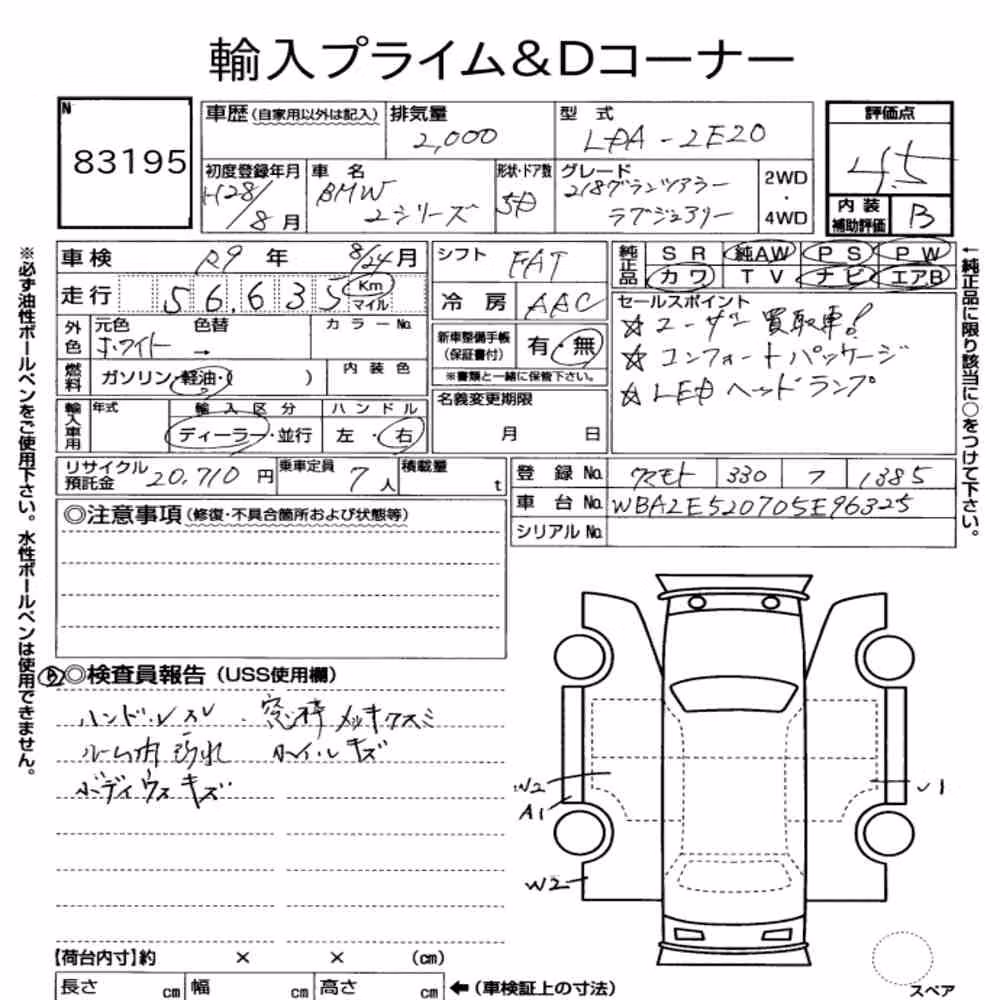 輸入プライム&Dコーナー
N
83195
車歴(自家用以外は記入)
排気量
2,000
型 式
LDA-2E20
評価点
4.5
初度登録年月
H28/8月
車 名
BMW
2シリーズ
形状・ドア数
5D
グレード
218グランツアラー
ラグジュアリー
2WD
・
4WD
内 装
補助評価
B
車検 R9 年 8/24月
走行 56,635 Km
マイル
シフト FAT
冷 房 AAC
純正品
SR 純AW PS PW
カワ TV ナビ エアB
セールスポイント
☆ユーザー買取車!
☆コンフォートパッケージ
☆LEDヘッドランプ
外色
元色 色替
ホワイト →
カラーNo.
燃料
ガソリン・軽油・( )
内 装 色
新車整備手帳
(保証書付)
有・無
※書類と一緒に保管下さい。
名義変更期限
月 日
輸入車用
年式
輸 入 区 分
ディーラー・並行
ハ ン ド ル
左 ・ 右
リサイクル
預託金
20,710 円
乗車定員
7 人
積載量
t
登 録 No. 330 ワ 1385
車 台 No. WBA2E520705E96325
シリアル No.
◎注意事項(修復・不具合箇所および状態等)
B ◎検査員報告(USS使用欄)
ハンドルスレ 窓枠メッキクスミ
ルーム内汚れ ホイルキズ
ボディウスキズ
W2
A1
W2
U1
【荷台内寸】約 × × (cm)
長さ cm 幅 cm 高さ cm
←(車検証上の寸法)
スペア
※必ず油性ボールペンをご使用下さい。水性ボールペンは使用できません。
←純正品に限り該当に○をつけて下さい。